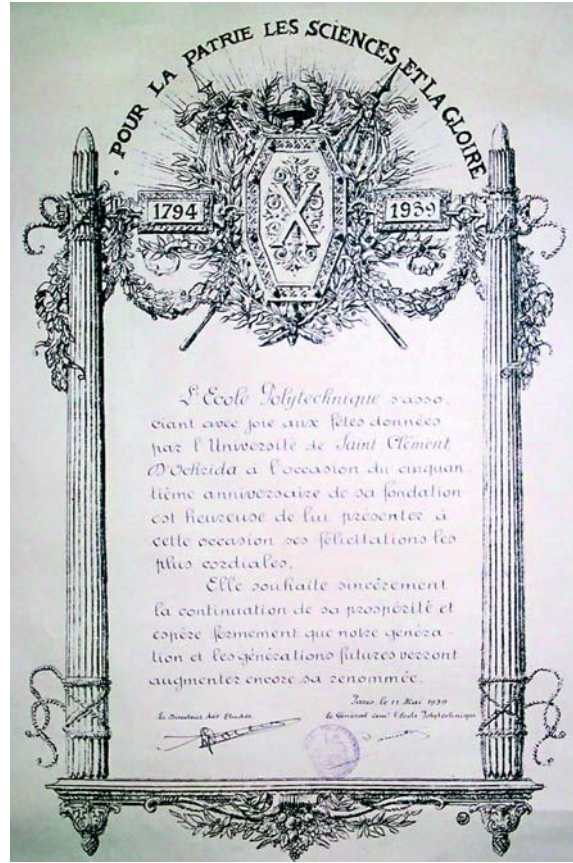 POUR LA PATRIE LES SCIENCES ET LA GLOIRE
1794
1939
X
L'Ecole Polytechnique s'asso-
ciant avec joie aux fêtes données
par l'Université de Saint Clément
D'Ochrida à l'occasion du cinquan
tième anniversaire de sa fondation
est heureuse de lui présenter à
cette occasion ses félicitations les
plus cordiales.
Elle souhaite sincèrement
la continuation de sa prospérité et
espère fermement que notre généra-
tion et les générations futures verront
augmenter encore sa renommée.
Paris, le 11 Mai 1939
Le Directeur des Etudes
Le Général comt l'Ecole Polytechnique